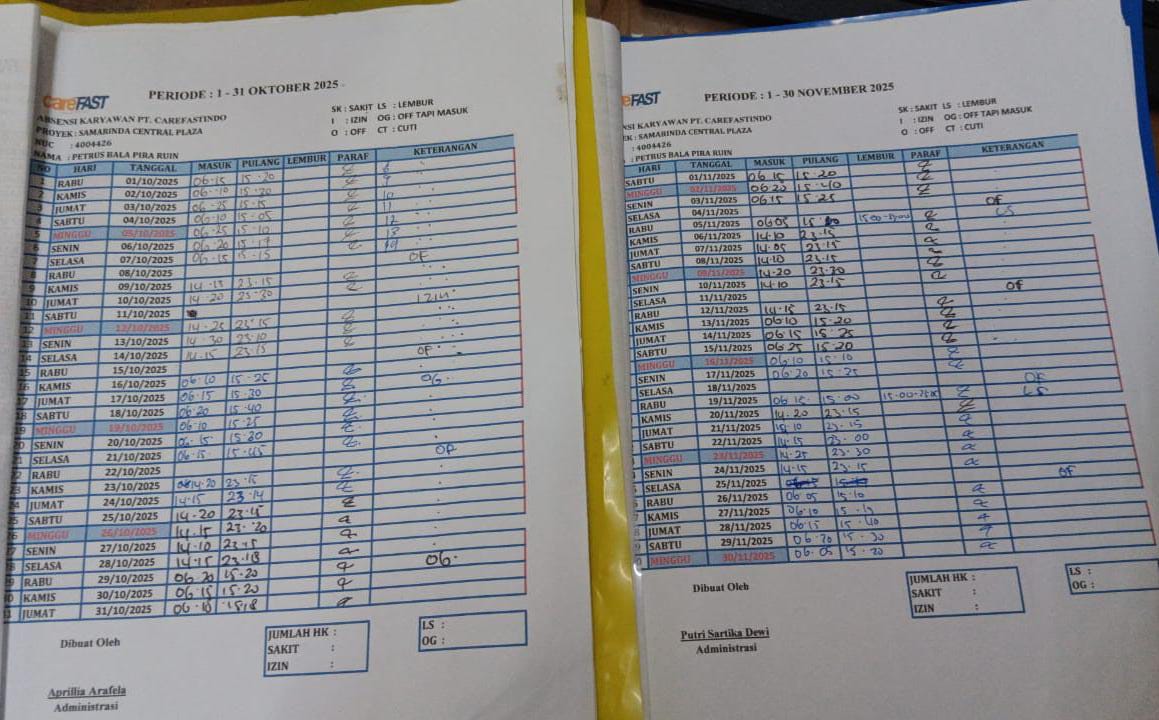 careFAST
PERIODE : 1 - 31 OKTOBER 2025
ABSENSI KARYAWAN PT. CAREFASTINDO
PROYEK : SAMARINDA CENTRAL PLAZA
NUC : 4004426
NAMA : PETRUS BALA PIRA RUIN
SK : SAKIT LS : LEMBUR
I : IZIN OG : OFF TAPI MASUK
O : OFF CT : CUTI
NO HARI TANGGAL MASUK PULANG LEMBUR PARAF KETERANGAN
1 RABU 01/10/2025 06.15 15.20
2 KAMIS 02/10/2025 06.10 15.20
3 JUMAT 03/10/2025 06.25 15.15
4 SABTU 04/10/2025 06.10 15.05
5 MINGGU 05/10/2025 06.25 15.10
6 SENIN 06/10/2025 06.20 15.17
7 SELASA 07/10/2025 06.15 15.15 OF
8 RABU 08/10/2025
9 KAMIS 09/10/2025 14.15 23.15
10 JUMAT 10/10/2025 14.20 IZIN
11 SABTU 11/10/2025
12 MINGGU 12/10/2025 14.25 23.15
13 SENIN 13/10/2025 14.30 23.10
14 SELASA 14/10/2025 14.15 23.15 OF
15 RABU 15/10/2025
16 KAMIS 16/10/2025 06.10 15.25 OG
17 JUMAT 17/10/2025 06.15 15.20
18 SABTU 18/10/2025 06.20 15.40
19 MINGGU 19/10/2025 06.10 15.25
20 SENIN 20/10/2025 06.15 15.20
21 SELASA 21/10/2025 06.15 15.45 OF
RABU 22/10/2025
KAMIS 23/10/2025 14.20 23.15
JUMAT 24/10/2025 14.15 23.14
25 SABTU 25/10/2025 14.20
MINGGU 26/10/2025 14.15 23.20
SENIN 27/10/2025 14.10 23.15
SELASA 28/10/2025 14.15 23.18 OG
RABU 29/10/2025 06.20 15.20
KAMIS 30/10/2025 06.15 15.20
JUMAT 31/10/2025 06.10 15.18
Dibuat Oleh
JUMLAH HK :
SAKIT :
IZIN :
LS :
OG :
Aprillia Arafela
Administrasi
eFAST
PERIODE : 1 - 30 NOVEMBER 2025
NSI KARYAWAN PT. CAREFASTINDO
EK : SAMARINDA CENTRAL PLAZA
: 4004426
: PETRUS BALA PIRA RUIN
SK : SAKIT LS : LEMBUR
I : IZIN OG : OFF TAPI MASUK
O : OFF CT : CUTI
HARI TANGGAL MASUK PULANG LEMBUR PARAF KETERANGAN
SABTU 01/11/2025 06.15 15.20
MINGGU 02/11/2025 06.20 15.40
SENIN 03/11/2025 06.15 15.25
SELASA 04/11/2025 OF
RABU 05/11/2025 06.05 LS
KAMIS 06/11/2025 14.10 23.15
JUMAT 07/11/2025 14.05 23.15
SABTU 08/11/2025 14.10 23.15
MINGGU 09/11/2025 14.20 23.20
SENIN 10/11/2025 14.10 23.15
SELASA 11/11/2025 OF
RABU 12/11/2025 14.15 23.15
KAMIS 13/11/2025 06.10 15.20
JUMAT 14/11/2025 06.15 15.25
SABTU 15/11/2025 06.25 15.20
MINGGU 16/11/2025 06.10 15.10
SENIN 17/11/2025 06.20 15.25
SELASA 18/11/2025 OF
RABU 19/11/2025 06.15 15.00 LS
KAMIS 20/11/2025 14.20 23.15
JUMAT 21/11/2025 23.15
SABTU 22/11/2025 14.15 23.00
MINGGU 23/11/2025 14.25 23.30
SENIN 24/11/2025 14.15 23.15
SELASA 25/11/2025 OF
RABU 26/11/2025 06.05 15.10
KAMIS 27/11/2025 06.10
JUMAT 28/11/2025 06.15 15.40
SABTU 29/11/2025 06.20 15.30
MINGGU 30/11/2025 06.05 15.20
Dibuat Oleh
JUMLAH HK :
SAKIT :
IZIN :
LS :
OG :
Putri Sartika Dewi
Administrasi